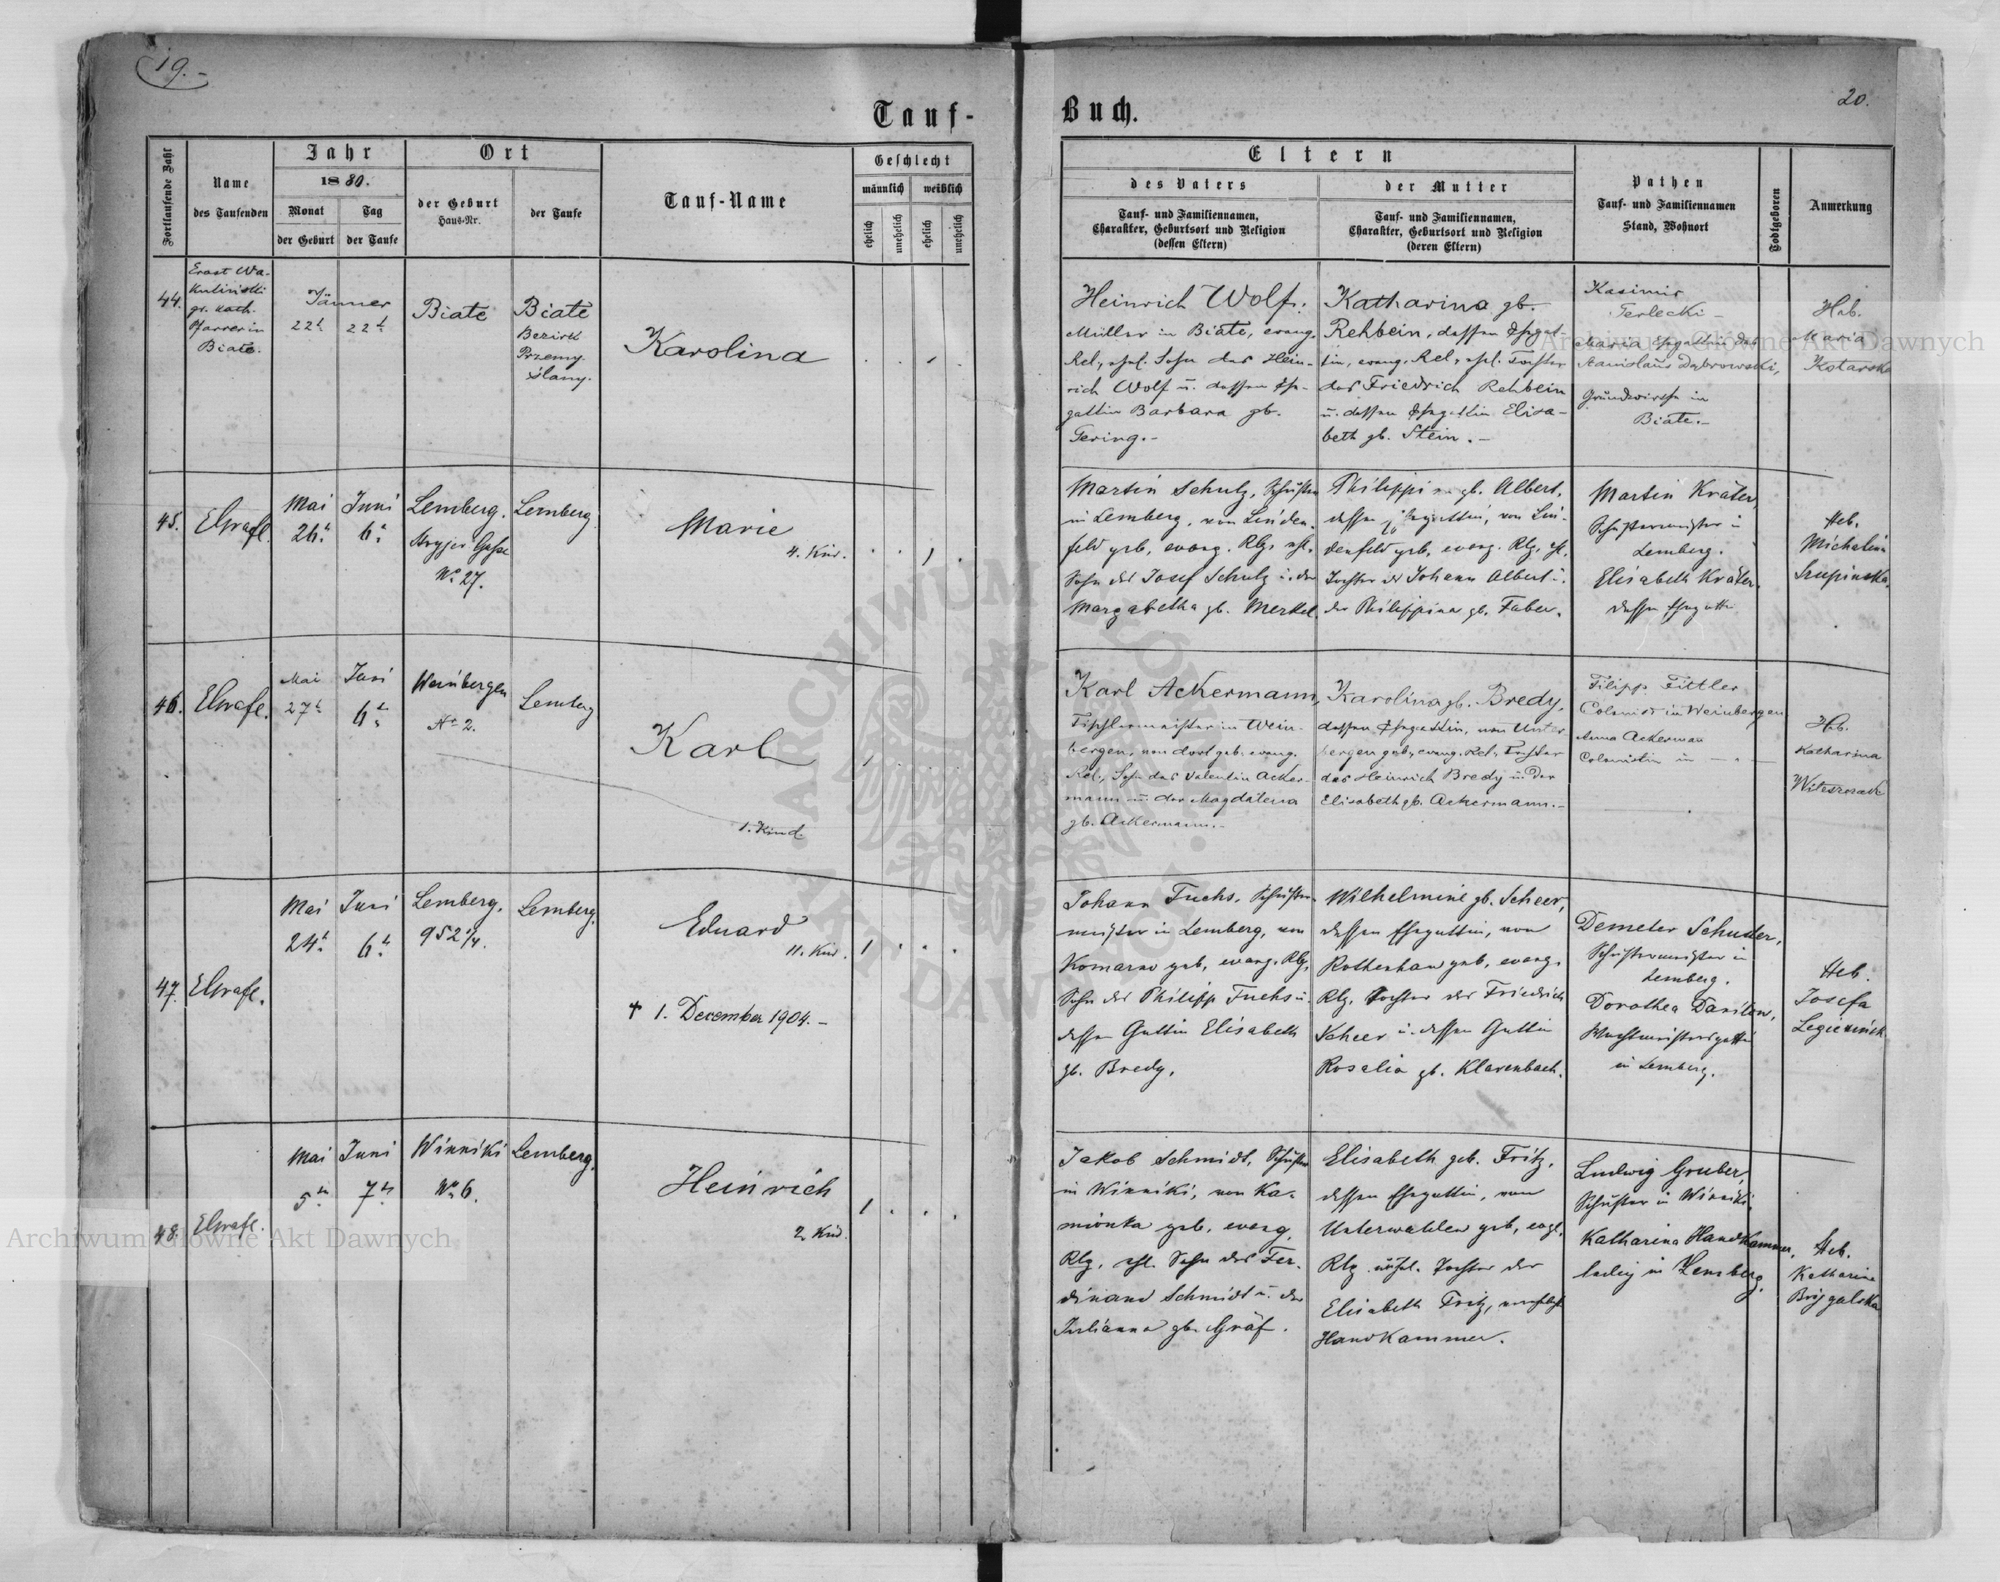 19.-
20.
Tauf-
Buch.
Fortlaufende Zahl
Name
des Taufenden
Jahr
1880.
Monat
der Geburt
Tag
der Taufe
Ort
der Geburt
Haus-Nr.
der Taufe
Tauf-Name
Geschlecht
männlich
weiblich
ehelich
unehelich
ehelich
unehelich
Eltern
des Vaters
Tauf- und Familiennamen,
Charakter, Geburtsort und Religion
(dessen Eltern)
der Mutter
Tauf- und Familiennamen,
Charakter, Geburtsort und Religion
(deren Eltern)
Pathen
Tauf- und Familiennamen
Stand, Wohnort
Todtgeboren
Anmerkung
44.
gr. kath.
Pfarrer in
Biate.
Jänner
22t
22t
Biate
Biate
Bezirk
Przemy-
ślany.
Karolina
Heinrich Wolf,
Müller in Biate, evang.
Rel., ehel. Sohn des Hein-
rich Wolf u. dessen Ehe-
gattin Barbara gb.
Tering.-
Katharina gb.
Rehbein, dessen Ehegat-
tin, evang. Rel., ehel. Tochter
des Friedrich Rehbein
u. dessen Ehegattin Elisa-
beth gb. Stein.-
Kasimir
Terlecki-
Maria Ehegattin des
Stanislaus Dąbrowski,
Grundwirthe in
Biate.-
Heb.
Maria
Kotarska
45.
EGrafl.
Mai
26t
Juni
6t
Lemberg.
Stryjer Gasse
No 27.
Lemberg.
Marie
4. Kind.
Martin Schulz, Schuster
in Lemberg, von Linden-
feld geb, evang. Rlg. ehl.
Sohn des Josef Schulz u. der
Margabetha gb. Merkel.
Philippina gb. Albert,
dessen Ehegattin, von Lin-
denfeld geb, evang. Rlg. ehl.
Tochter des Johann Albert u.
der Philippina gb. Faber.
Martin Kräter,
Schustermeister in
Lemberg.
Elisabeth Kräter,
dessen Ehegattin
Heb.
Michalina
46.
EGrafl.
Mai
27t
Juni
6t
Weinbergen
No 2.
Lemberg
Karl
1. Kind.
Karl Ackermann,
Tischlermeister in Wein-
bergen, von dort geb. evang.
Rel., Sohn des Valentin Acker-
mann u. der Magdalena
gb. Ackermann.-
Karolina gb. Bredy,
dessen Ehegattin, von Unter
bergen geb, evang. Rel., Tochter
des Heinrich Bredy u. der
Elisabeth gb. Ackermann.-
Filipp Fittler
Colonist in Weinbergen
Anna Ackerman
Colonistin in
Heb.
Katharina
47.
EGrafl.
Mai
24t
Juni
6t
Lemberg.
952 1/4.
Lemberg.
Eduard
11. Kind.
† 1. December 1904.-
Johann Fuchs, Schuster-
meister in Lemberg, von
Komarno geb, evang. Rlg.
Sohn des Philipp Fuchs u.
dessen Gattin Elisabeth
gb. Bredy.
Wilhelmine gb. Scheer,
dessen Ehegattin, von
Rottenhan geb, evang.
Rlg. Tochter des Friedrich
Scheer u. dessen Gattin
Rosalia gb. Klarenbach.
Demeter Schuster,
Schustermeister in
Lemberg.
Dorothea
Wachtmeistersgattin
in Lemberg.
Heb.
Josefa
48.
EGrafl.
Mai
5t
Juni
7t
Winniki
No 6.
Lemberg.
Heinrich
2. Kind.
Jakob Schmidt, Schuster
in Winniki, von Ka-
mionka geb, evang.
Rlg. ehl. Sohn des Fer-
dinand Schmidt u. der
Julianna gb. Gräf.
Elisabeth geb. Fritz,
dessen Ehegattin, von
Unterwalden geb, evgl.
Rlg. unehl. Tochter der
Elisabeth Fritz, verehlicht
Handkammer.
Ludwig Gruber,
Schuster in Winniki,
Katharina Handkammer,
ledig in Lemberg.
Heb.
Katharina
Archiwum Główne Akt Dawnych
Archiwum Główne Akt Dawnych